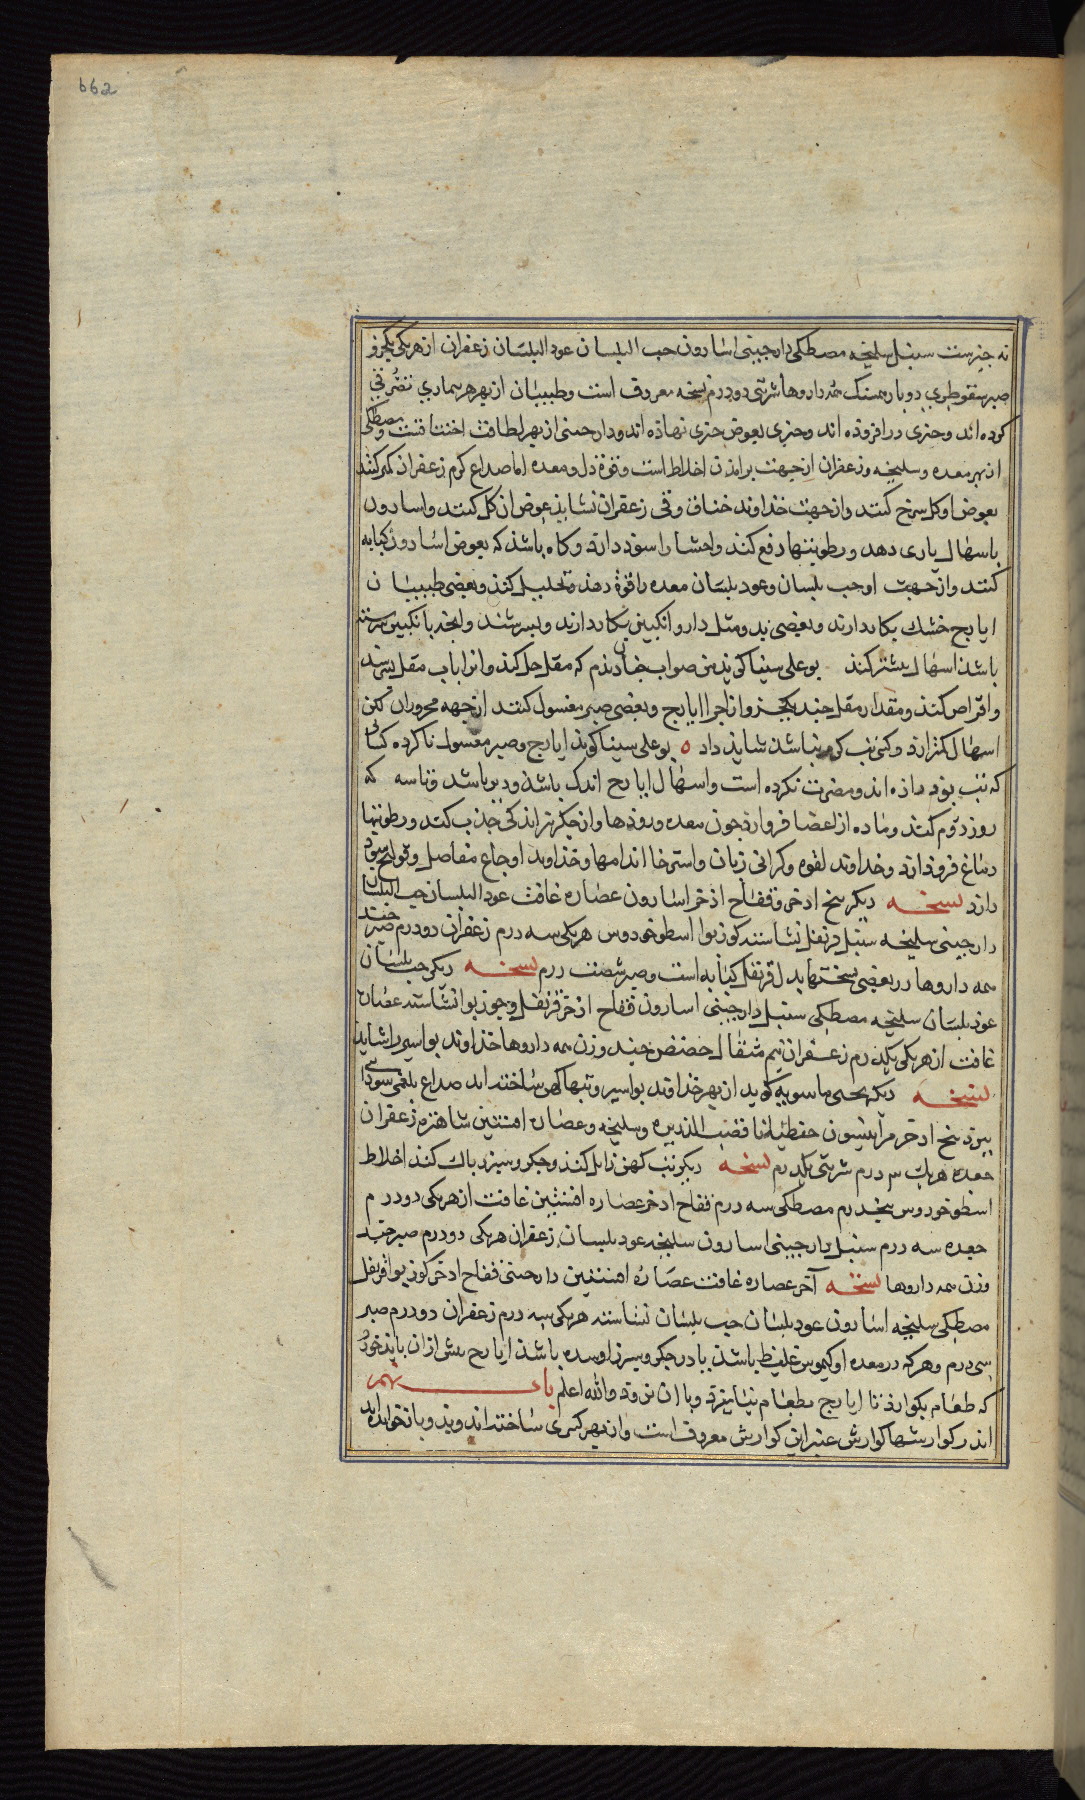 662
نه چیزست سنبل سلیخه مصطکی دارچینی اسارون حب البلسان عود البلسان زعفران از هریکی یکجزو
صبر سقوطری دو بار همسنک همه داروها شربتی دو درم نسخه معروف است و طبیبان از بهر هر بیماری تصرفی
کرده اند و چیزی در افزوده اند و چیزی بعوض چیزی نهاده اند و دارچینی از بهر لطافت و مصطکی
از بهر معده و سلیخه و زعفران از جهت اخلاط است و قوة دل و معده اما صداع کرم زعفران کمتر کنند
بعوض او کل سرخ کنند و از جهت خداوند خناق وقی زعفران نشاید عوض ان کل کنند و اسارون
باسهال یاری دهد و رطوبتها دفع کند و احشا را سود دارد و کاه باشد که بعوض اسارون کبابه
کنند و از جهت او حب بلسان و عود بلسان معده را قوة دهد و تحلیل کند و بعضی طبیبان
ایارج خشک بکار دارند و بعضی انکبین بکار دارند و بسرشند و انچه بانکبین سرشته
باشد اسهال بیشتر کند بو علی سینا کوید من صواب چنان دیدم که مقل حل کند و انرا باب مقل بسرشد
و اقراص کنند و مقدار مقل چند یکجزو از اجزا ایارج و بعضی صبر مغسول کنند از جهه محروران لکن
اسهال کمتر ارد و کسی تب کرم نباشد شاید داد ه بو علی سینا کوید ایارج و صبر مغسول ناکرده کسانی
که تب بود داده اند و مضرت نکرده است و اسهال ایارج اندک باشد و دیر باشد که
روز دوم کند و ماده از اعضا فروارد چون معده و رودها و از جکر تر اندکی جذب کند و رطوبتها
دماغ فرود ارد و خداوند لقوه و کرانی زبان و استرخا اندامها و خداوند اوجاع مفاصل و قولنج سود
دارد نسخه دیکر بیخ ادخر و فقاح اذخر اسارون عصاره غافث عود البلسان حب البلسان
دارچینی سلیخه سنبل قرنفل نشاسته کوزبوا اسطوخودوس هریکی سه درم زعفران دو درم صبر چند
همه داروها در بعضی نسختها بدل قرنفل کبابه است و صبر شصت درم نسخه دیکر حب بلسان
عود بلسان سلیخه مصطکی سنبل دارچینی اسارون فقاح اذخر قرنفل و جوزبوا نشاسته عصاره
غافت از هریکی یکدرم زعفران نیم مثقال حضض چند وزن همه داروها خداوند بواسیر را شاید
نسخه دیکر یحیی ماسویه کوید از بهر خداوند بواسیر و تبها کهن ساخته اند صداع بلغمی سودا
ببرد بیخ ادخر مر انیسون قصب الذریره و سلیخه و عصاره افسنتین شاهتره زعفران
جعده هریک درم شربتی یکدرم نسخه دیکر تب کهن زایل کند و جکر و سپرز پاک کند اخلاط
اسطوخودوس پنجدرم مصطکی سه درم فقاح ادخر عصاره افسنتین غافت از هریکی دو درم
جعده سه درم سنبل دارچینی اسارون سلیخه عود بلسان زعفران هریکی دو درم صبر چند
وزن همه داروها نسخه آخر عصاره غافت عصاره افسنتین دارچینی فقاح ادخر کوزبوا قرنفل
مصطکی سلیخه اسارون عود بلسان حب بلسان نشاسته هریکی سه درم زعفران دو درم صبر
سی درم و هرکه در معده او کیموس غلیظ باشد یا در جکر و سپرز او سده باشد ایارج پیش از ان باید خورد
که طعام بکوارد تا ایارج بطعام نیامیزد و با ان نرود والله اعلم باب نهم
اندر کوارشها کوارش عنبر این کوارش معروف است و از بهر کسری ساخته اند